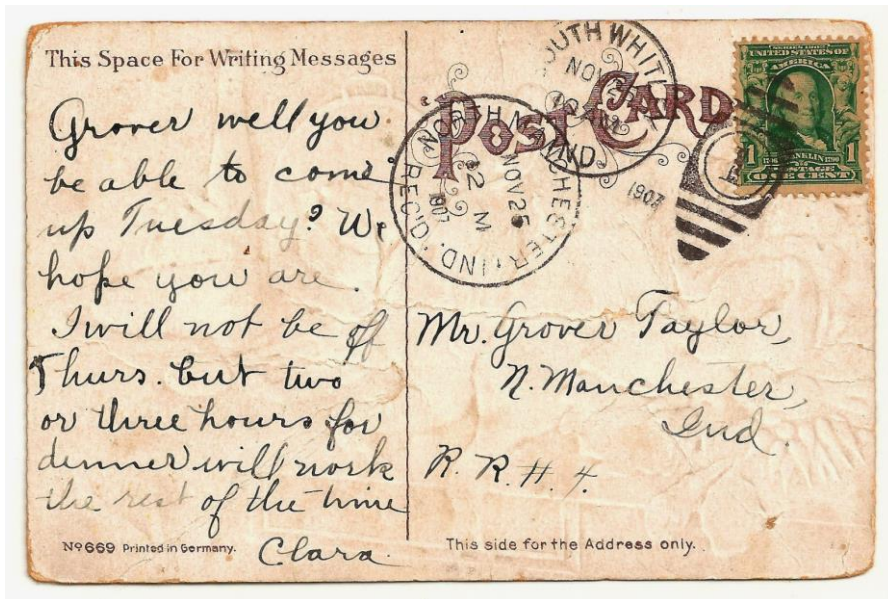 This Space For Writing Messages
Grover well you
be able to come
up Tuesday? We
hope you are.
I will not be off
Thurs. but two
or three hours for
dinner will work
the rest of the time
Clara
No 669 Printed in Germany.
POST CARD
SOUTH WHITLEY
NOV
IND.
1907
NORTH MANCHESTER, IND.
NOV 25
12 M
1907
REC'D.
UNITED STATES OF
AMERICA
1 FRANKLIN 1
POSTAGE
ONE CENT
Mr. Grover Taylor,
N. Manchester,
Ind.
R. R. #. 4.
This side for the Address only.